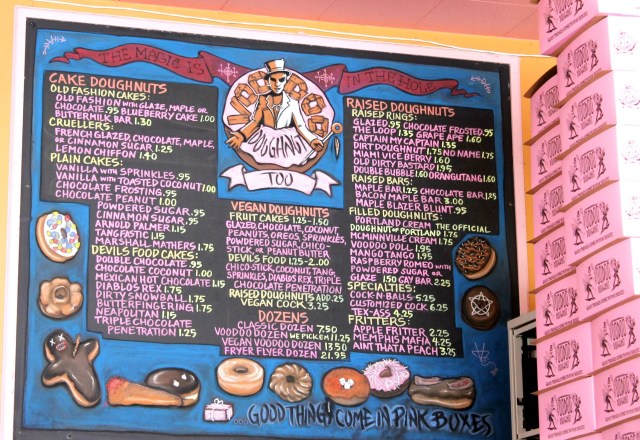 THE MAGIC IS
IN THE HOLE
VOODOO
DOUGHNUT
TOO
CAKE DOUGHNUTS
OLD FASHION CAKES:
OLD FASHION WITH GLAZE, MAPLE OR
CHOCOLATE .95 BLUEBERRY CAKE 1.00
BUTTERMILK BAR 1.30
CRUELLERS:
FRENCH GLAZED, CHOCOLATE, MAPLE,
OR CINNAMON SUGAR 1.25
LEMON CHIFFON 1.40
PLAIN CAKES:
VANILLA WITH SPRINKLES .95
VANILLA WITH TOASTED COCONUT 1.00
CHOCOLATE FROSTING .95
CHOCOLATE PEANUT 1.00
POWDERED SUGAR .95
CINNAMON SUGAR .95
ARNOLD PALMER 1.15
TANGTASTIC 1.15
MARSHALL MATHERS 1.75
DEVILS FOOD CAKES:
DOUBLE CHOCOLATE .95
CHOCOLATE COCONUT 1.00
MEXICAN HOT CHOCOLATE 1.15
DIABLOS REX 1.75
DIRTY SNOWBALL 1.75
BUTTERFINGERING 1.75
NEAPOLITAN 1.15
TRIPLE CHOCOLATE
PENETRATION 1.25
VEGAN DOUGHNUTS
FRUIT CAKES 1.25-1.50
GLAZED, CHOCOLATE, COCONUT,
PEANUTS, OREOS, SPRINKLES,
POWDERED SUGAR, CHICK O
STICK, OR PEANUT BUTTER
DEVILS FOOD 1.25-2.00
CHICO STICK, COCONUT, TANG,
SPRINKLES, DIABLOS REX, TRIPLE
CHOCOLATE PENETRATION
RAISED DOUGHNUTS ADD .25
VEGAN COCK 3.25
DOZENS
CLASSIC DOZEN 7.50
VOODOO DOZEN WE PICK EM 11.25
VEGAN VOODOO DOZEN 13.50
FRYER FLYER DOZEN 21.95
RAISED DOUGHNUTS
RAISED RINGS:
GLAZED .95 CHOCOLATE FROSTED .95
THE LOOP 1.35 GRAPE APE 1.60
CAPTAIN MY CAPTAIN 1.35
DIRT DOUGHNUT 1.75 NO NAME 1.75
MIAMI VICE BERRY 1.60
OLD DIRTY BASTARD 1.95
DOUBLE BUBBLE 1.60 ORANGUTANG 1.60
RAISED BARS:
MAPLE BAR 1.25 CHOCOLATE BAR 1.25
BACON MAPLE BAR 3.00
MAPLE BLAZER BLUNT .95
FILLED DOUGHNUTS:
PORTLAND CREAM THE OFFICIAL
DOUGHNUT OF PORTLAND 1.75
MCMINNVILLE CREAM 1.75
VOODOO DOLL 1.95
MANGO TANGO 1.95
RASPBERRY ROMEO WITH
POWDERED SUGAR OR
GLAZE 1.50 GAY BAR 2.25
SPECIALTIES:
COCK-N-BALLS 5.25
CUSTOMIZED COCK 6.25
TEX-ASS 4.25
FRITTERS:
APPLE FRITTER 2.25
MEMPHIS MAFIA 4.25
AUNT THAT A PEACH 3.25
...GOOD THINGS COME IN PINK BOXES
VOODOO